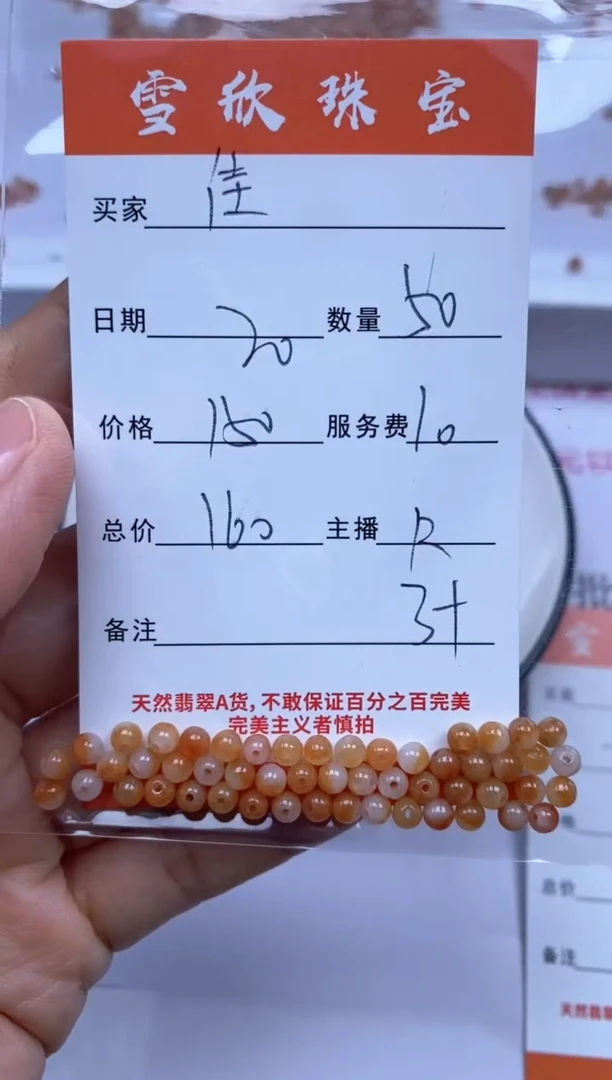 雪欣珠宝
买家 佳
日期 20 数量 50
价格 150 服务费 10
总价 160 主播 R
备注 3十
天然翡翠A货,不敢保证百分之百完美
完美主义者慎拍
总价
备注
天然翡翠